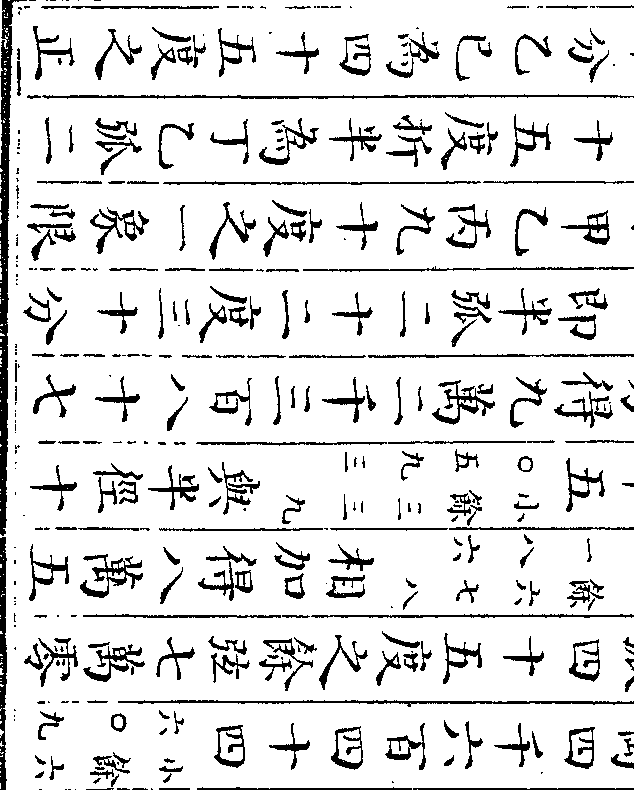 四千六百四十四小餘六六〇九
四十五度之餘弦七萬零
餘六七八一八六相加得八萬五
五小餘三三九〇五九三與半徑十
得九萬二千三百八十七
即半弧二十二度三十分
甲乙丙九十度之一象限
十五度折半為丁乙弧二
分乙已為四十五度之正